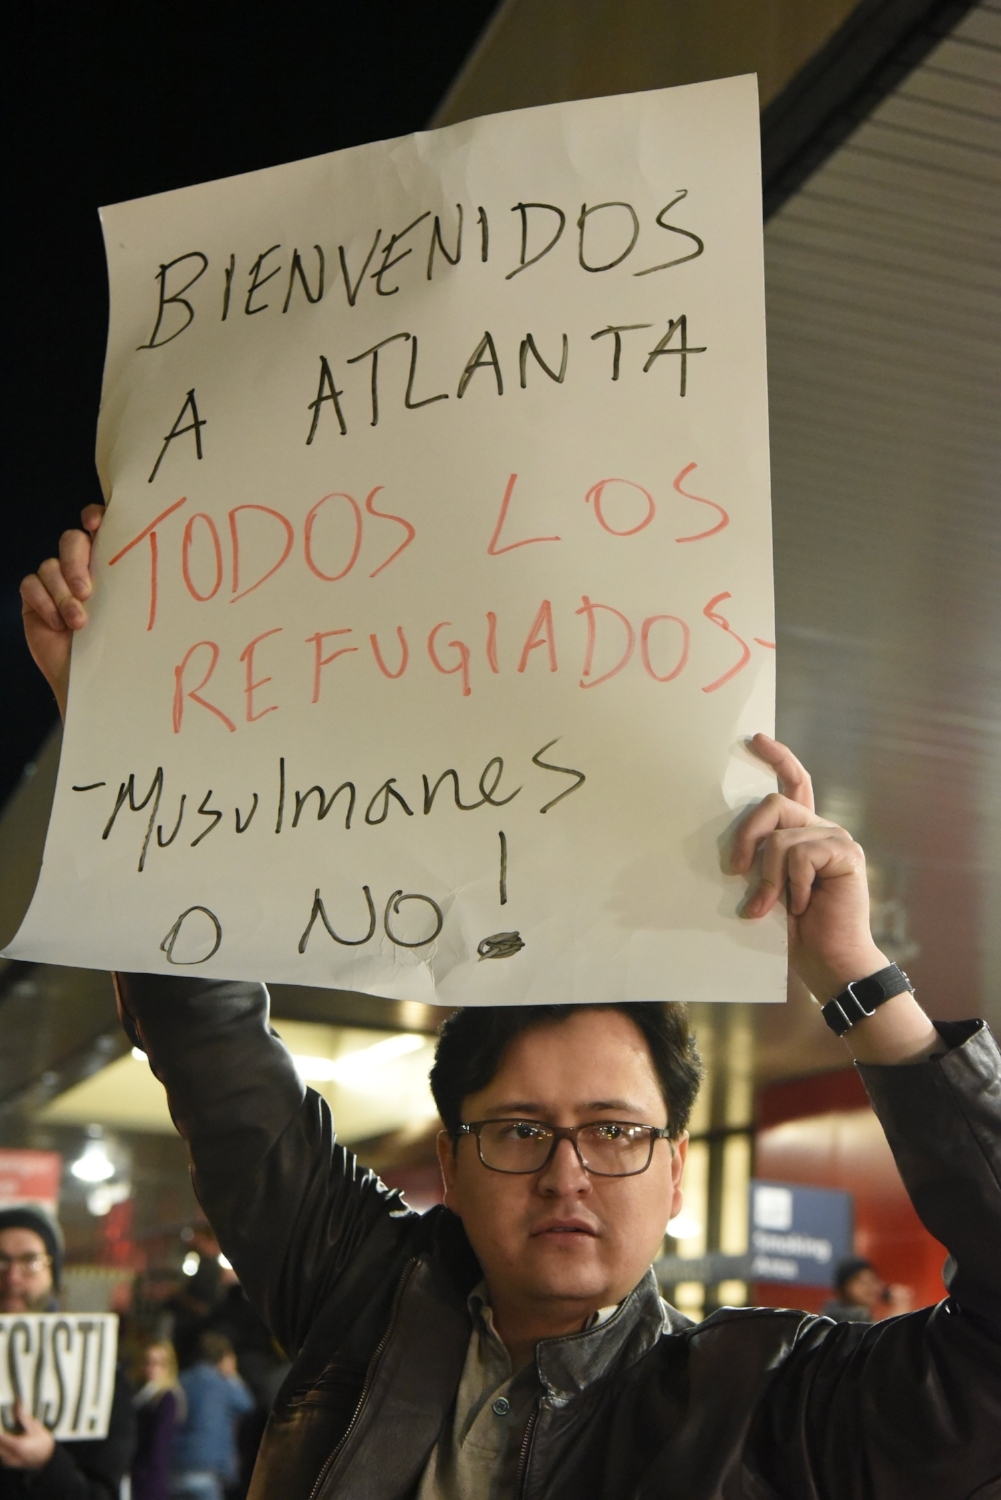 BIENVENIDOS
A ATLANTA
TODOS LOS
REFUGIADOS-
-Musulmanes
O NO!
Smoking
Area
SIST!